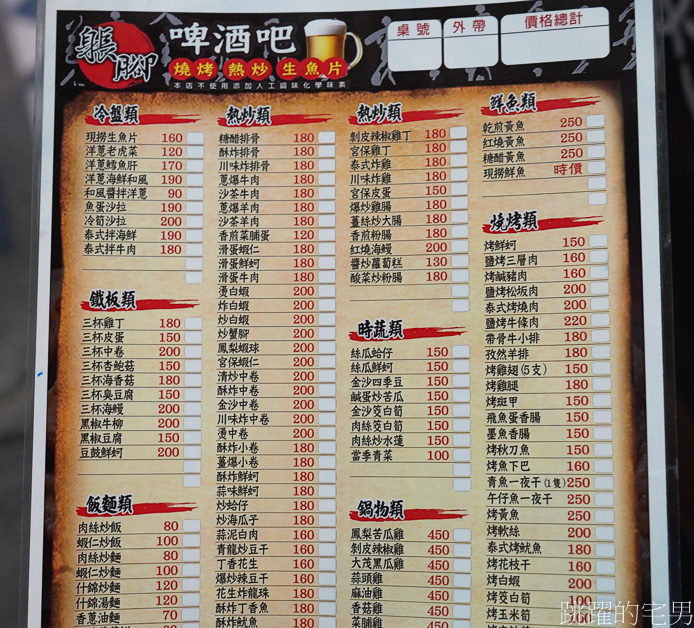 躼腳
啤酒吧
燒烤 熱炒 生魚片
本店不使用添加人工調味化學味素
桌號 外帶 價格總計
冷盤類
現撈生魚片 160
洋蔥老虎菜 120
洋蔥鱈魚肝 170
洋蔥海鮮和風 190
和風醬拌洋蔥 90
魚蛋沙拉 190
冷筍沙拉 200
泰式拌海鮮 190
泰式拌牛肉 180
鐵板類
三杯雞丁 180
三杯皮蛋 150
三杯中卷 200
三杯杏鮑菇 150
三杯海香菇 180
三杯臭豆腐 150
三杯海鰻 200
黑椒牛柳 200
黑椒豆腐 150
豆豉鮮蚵 200
飯麵類
肉絲炒飯 80
蝦仁炒飯 100
肉絲炒麵 80
蝦仁炒麵 100
什錦炒麵 120
什錦湯麵 120
香蔥油麵 70
熱炒類
糖醋排骨 180
酥炸排骨 180
川味炸排骨 180
蔥爆牛肉 180
沙茶牛肉 180
蔥爆羊肉 180
沙茶羊肉 180
香煎菜脯蛋 120
滑蛋蝦仁 180
滑蛋鮮蚵 180
滑蛋牛肉 180
燙白蝦 200
炸白蝦 200
炒白蝦 200
炒蟹腳 200
鳳梨蝦球 200
宮保蝦仁 200
清炒中卷 200
酥炸中卷 200
金沙中卷 200
川味炸中卷 200
燙中卷 200
酥炸小卷 180
薑爆小卷 180
酥炸鮮蚵 180
蒜味鮮蚵 180
炒蛤仔 180
炒海瓜子 180
蒜泥白肉 160
青龍炒豆干 150
丁香花生 160
爆炒辣豆干 150
花生炸龍珠 180
酥炸丁香魚 180
酥炸魷魚 180
熱炒類
剝皮辣椒雞丁 180
宮保雞丁 180
泰式炸雞 180
川味炸雞 180
宮保皮蛋 150
爆炒雞腸 180
薑絲炒大腸 180
香煎粉腸 180
紅燒海鰻 200
醬炒蘿蔔糕 130
酸菜炒粉腸 180
時蔬類
絲瓜蛤仔 150
絲瓜鮮蚵 150
金沙四季豆 150
鹹蛋炒苦瓜 150
金沙筊白筍 150
肉絲筊白筍 150
肉絲炒水蓮 150
當季青菜 100
鍋物類
鳳梨苦瓜雞 450
剝皮辣椒雞 450
大茂黑瓜雞 450
蒜頭雞 450
麻油雞 450
香菇雞 450
菜脯雞 450
鮮魚類
乾煎黃魚 250
紅燒黃魚 250
糖醋黃魚 250
現撈鮮魚 時價
燒烤類
烤鮮蚵 150
鹽烤三層肉 160
烤鹹豬肉 160
鹽烤松坂肉 200
泰式烤燒肉 200
鹽烤牛條肉 220
帶骨牛小排 180
孜然羊排 180
烤雞翅(5支) 150
烤雞腿 180
烤斑甲 150
飛魚蛋香腸 150
墨魚香腸 150
烤秋刀魚 150
烤魚下巴 160
青魚一夜干(1隻) 250
午仔魚一夜干 250
烤黃魚 250
烤軟絲 200
泰式烤魷魚 180
烤花枝干 160
烤白蝦 200
烤筊白筍 100
烤玉米筍
跳躍的宅男